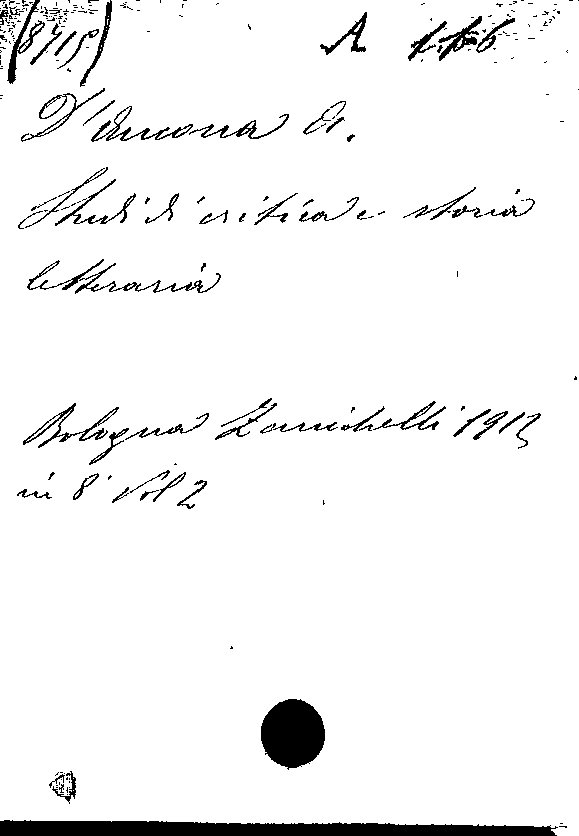 (8715) A
D'Ancona A.
Studi di critica e storia
letteraria
Bologna Zanichelli 1912
in 8° Vol 2